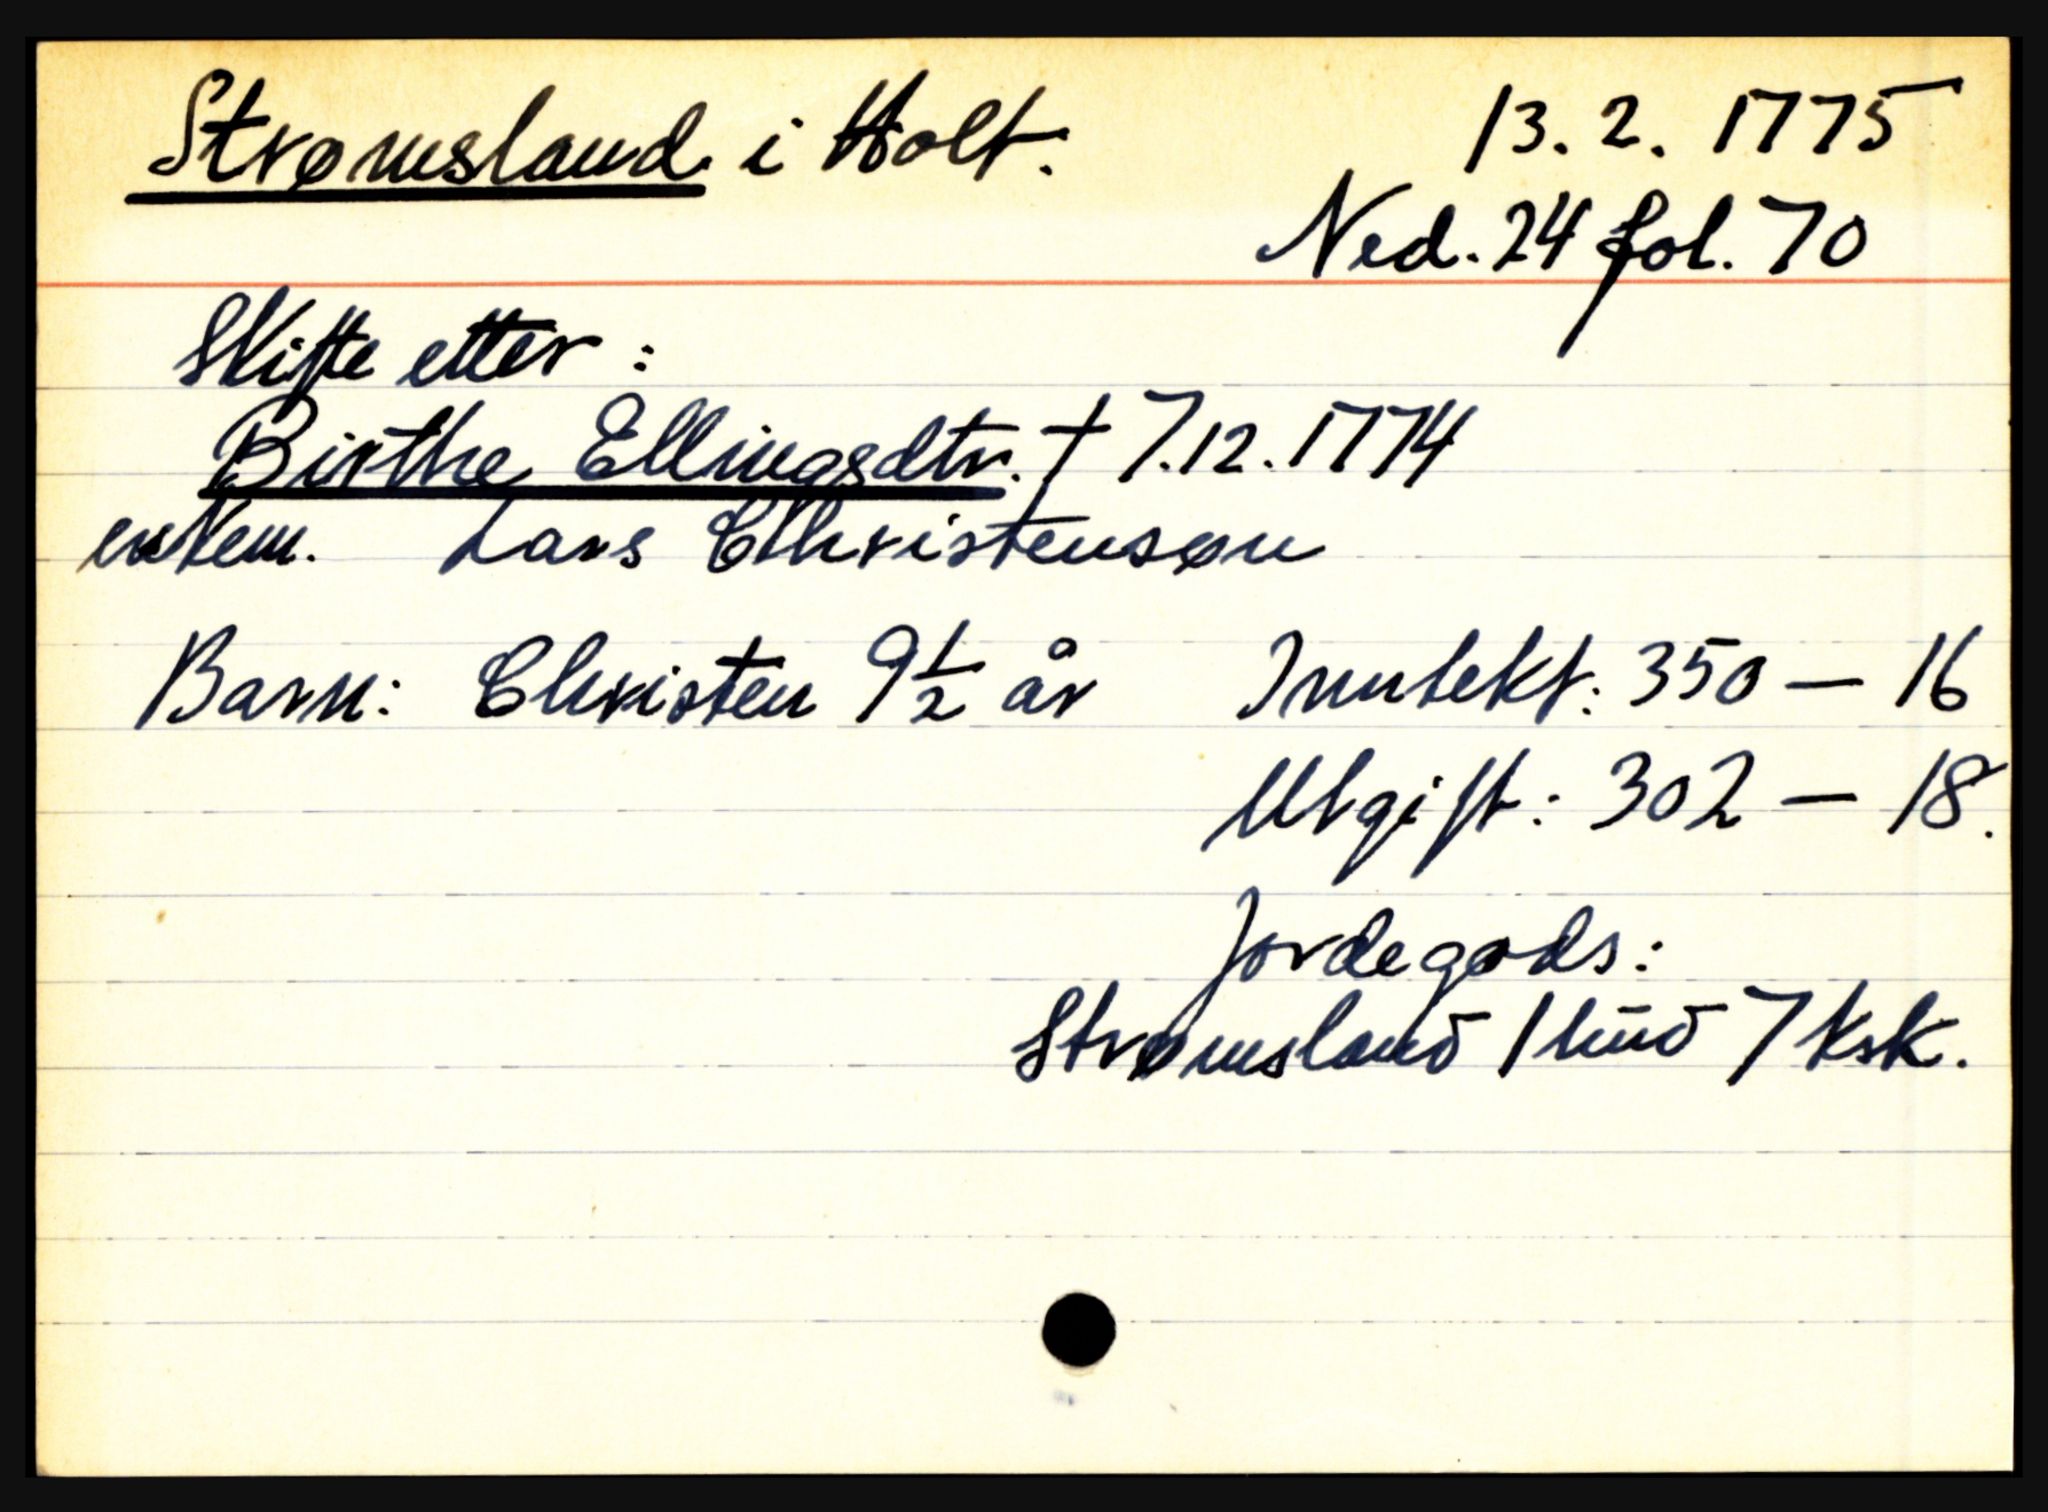 Strømsland i Holt. 13. 2. 1775
Ned. 24 fol. 70
Skifte etter:
Birthe Ellingsdtr. † 7.12.1774
enkem. Lars Christensøn
Barn: Christen 9½ år Inntekt: 350 — 16
Utgift: 302 — 18.
Jordegods:
Strømsland 1 hud 7 ksk.